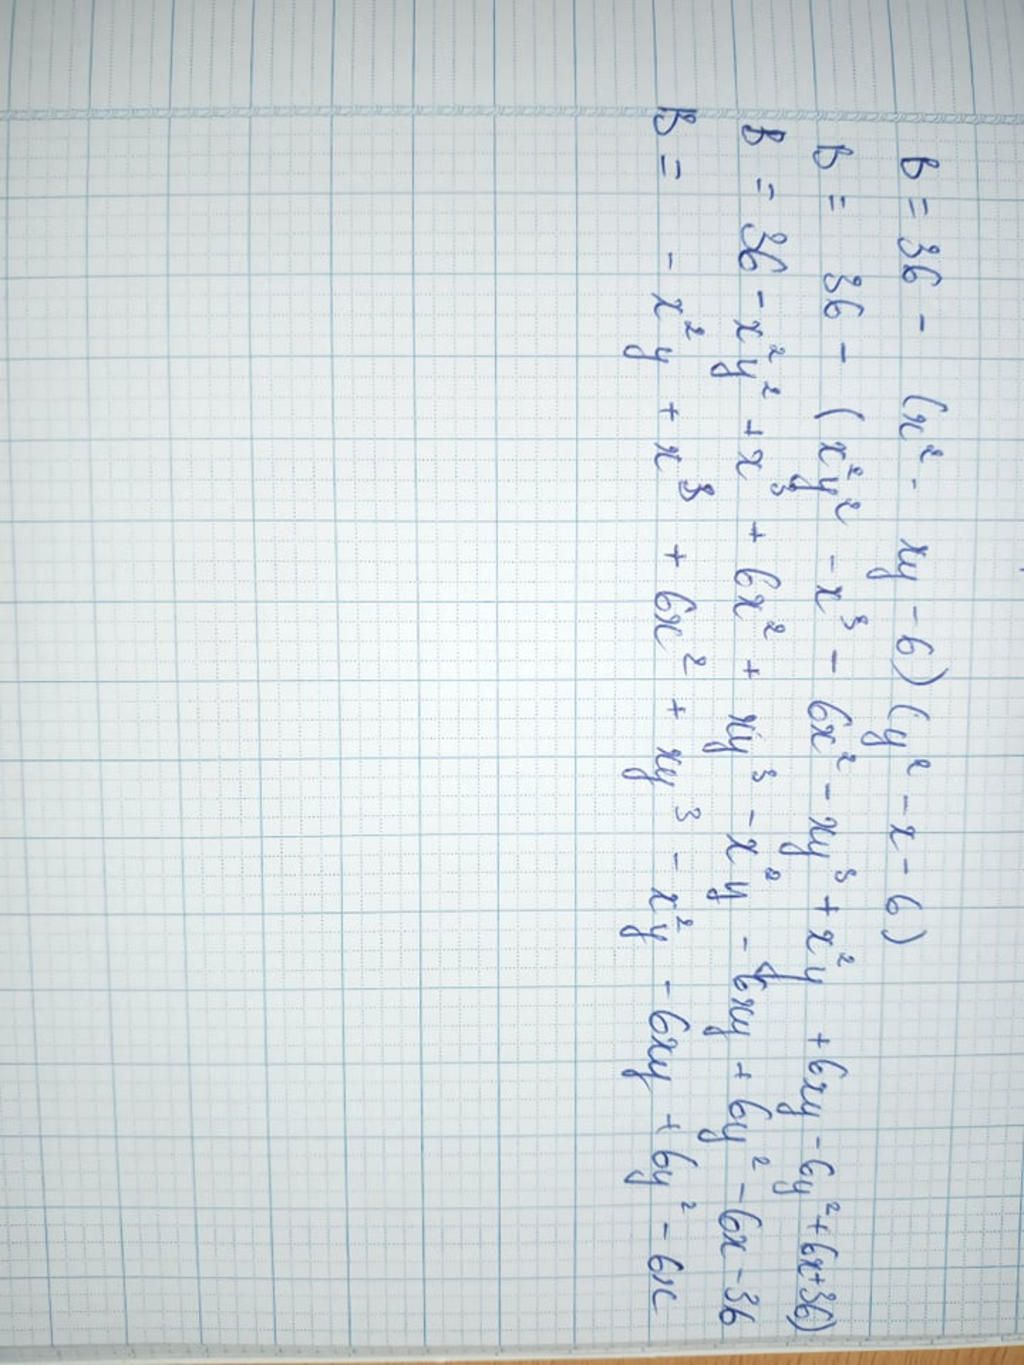 B = 36 - (x² - xy - 6)(y² - x - 6)
B = 36 - (x²y² - x³ - 6x² - xy³ + x²y + 6xy - 6y² + 6x + 36)
B = 36 - x²y² + x³ + 6x² + xy³ - x²y - 6xy + 6y² - 6x - 36
B = - x²y + x³ + 6x² + xy³ - x²y - 6xy + 6y² - 6x